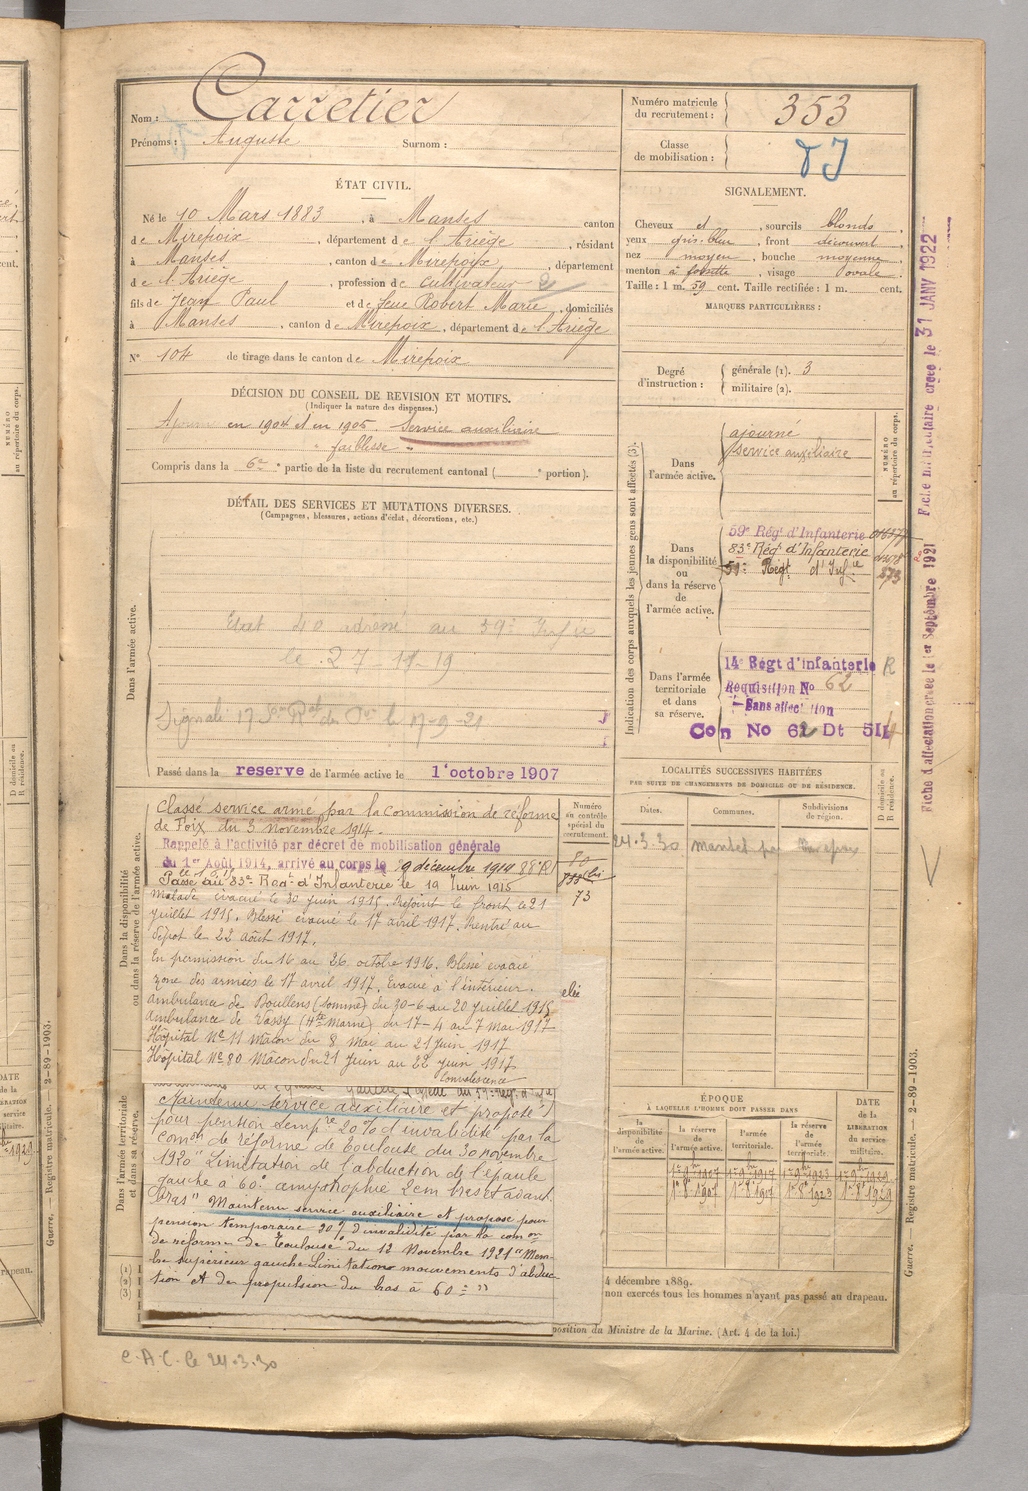 Nom : Carretier
Prénoms : Auguste Surnom :
Numéro matricule du recrutement : 353
Classe de mobilisation :
ÉTAT CIVIL.
Né le 10 Mars 1883, à Manses canton
de Mirepoix, département de l'Ariège, résidant
à Manses, canton de Mirepoix, département
de l'Ariège, profession de cultivateur
fils de Jean Paul et de feue Robert Marie, domiciliés
à Manses, canton de Mirepoix, département de l'Ariège
N° 104 de tirage dans le canton de Mirepoix
SIGNALEMENT.
Cheveux et, sourcils blonds,
yeux gris-bleu, front découvert,
nez moyen, bouche moyenne,
menton à fossette, visage ovale.
Taille : 1 m. 59 cent. Taille rectifiée : 1 m. cent.
MARQUES PARTICULIÈRES :
Degré d'instruction : générale (1). 3
militaire (2).
DÉCISION DU CONSEIL DE REVISION ET MOTIFS.
(Indiquer la nature des dispenses.)
Ajourné en 1904 et en 1905. Service auxiliaire
"faiblesse"
Compris dans la 6e partie de la liste du recrutement cantonal ( e portion).
DÉTAIL DES SERVICES ET MUTATIONS DIVERSES.
(Campagnes, blessures, actions d'éclat, décorations, etc.)
Dans l'armée active.
Etat 40 adressé au 59e Infie
le 27-11-19
Signalé 17 le 17-9-21
Passé dans la reserve de l'armée active le 1er octobre 1907
Indication des corps auxquels les jeunes gens sont affectés (3).
NUMÉRO au répertoire du corps.
Dans l'armée active.
ajourné
service auxiliaire
Dans la disponibilité ou dans la réserve de l'armée active.
59e Régt d'Infanterie
83e Régt d'Infanterie
59e Régt d'Infie 573
Dans l'armée territoriale et dans sa réserve.
14e Régt d'infanterie R
Requisition No 62
Sans affectation
Con No 62 Dt 511
Fiche d'affectation creée le 1er Septembre 1921 Fiche matriculaire creée le 31 JANV 1922
LOCALITÉS SUCCESSIVES HABITÉES
PAR SUITE DE CHANGEMENTS DE DOMICILE OU DE RÉSIDENCE.
Dates. Communes. Subdivisions de région. D domicile ou R résidence.
24-3-30 Manses par Mirepoix
Dans la disponibilité ou dans la réserve de l'armée active.
Numéro au contrôle spécial du recrutement.
80
73
Classé service armé par la commission de réforme
de Foix du 3 novembre 1914.
Rappelé à l'activité par décret de mobilisation générale
du 1er Août 1914, arrivé au corps le 9 décembre 1914
Passé au 83e Régt d'Infanterie le 19 Juin 1915
Malade évacué le 30 juin 1915. Rejoint le front le 21
juillet 1915. Blessé évacué le 17 avril 1917. Rentré au
dépôt le 22 août 1917.
En permission du 16 au 26 octobre 1916. Blessé évacué
zone des armées le 17 avril 1917. Evacué à l'intérieur.
Ambulance de Doullens (Somme) du 30-6 au 20 juillet 1915
Ambulance de Vassy (Hte Marne) du 17-4 au 7 mai 1917
Hôpital N° 11 Macon du 8 Mai au 21 juin 1917
Hôpital N° 80 Macon du 21 Juin au 22 juin 1917
Convalescence
Dans l'armée territoriale et dans sa réserve.
Maintenu service auxiliaire et proposé
pour pension tempre 20% d'invalidité par la
comon de réforme de Toulouse du 30 novembre
1920 "Limitation de l'abduction de l'épaule
gauche à 60° amyotrophie 2cm bras et avant
bras" Maintenu service auxiliaire et proposé pour
pension temporaire 20% d'invalidité par la comon
de réforme de Toulouse du 12 Novembre 1921 "Mem-
bre supérieur gauche Limitation mouvements d'abduc-
tion et de propulsion du bras à 60°"
ÉPOQUE
À LAQUELLE L'HOMME DOIT PASSER DANS
la disponibilité de l'armée active. la réserve de l'armée active. l'armée territoriale. la réserve de l'armée territoriale.
DATE de la LIBÉRATION du service militaire.
1er 8bre 1907 1er 8bre 1917 1er 8bre 1923 1er 8bre 1929
4 décembre 1889.
non exercés tous les hommes n'ayant pas passé au drapeau.
position du Ministre de la Marine. (Art. 4 de la loi.)
Guerre. — Registre matricule. — 2-89-1903.
C.A.C. le 24-3-30